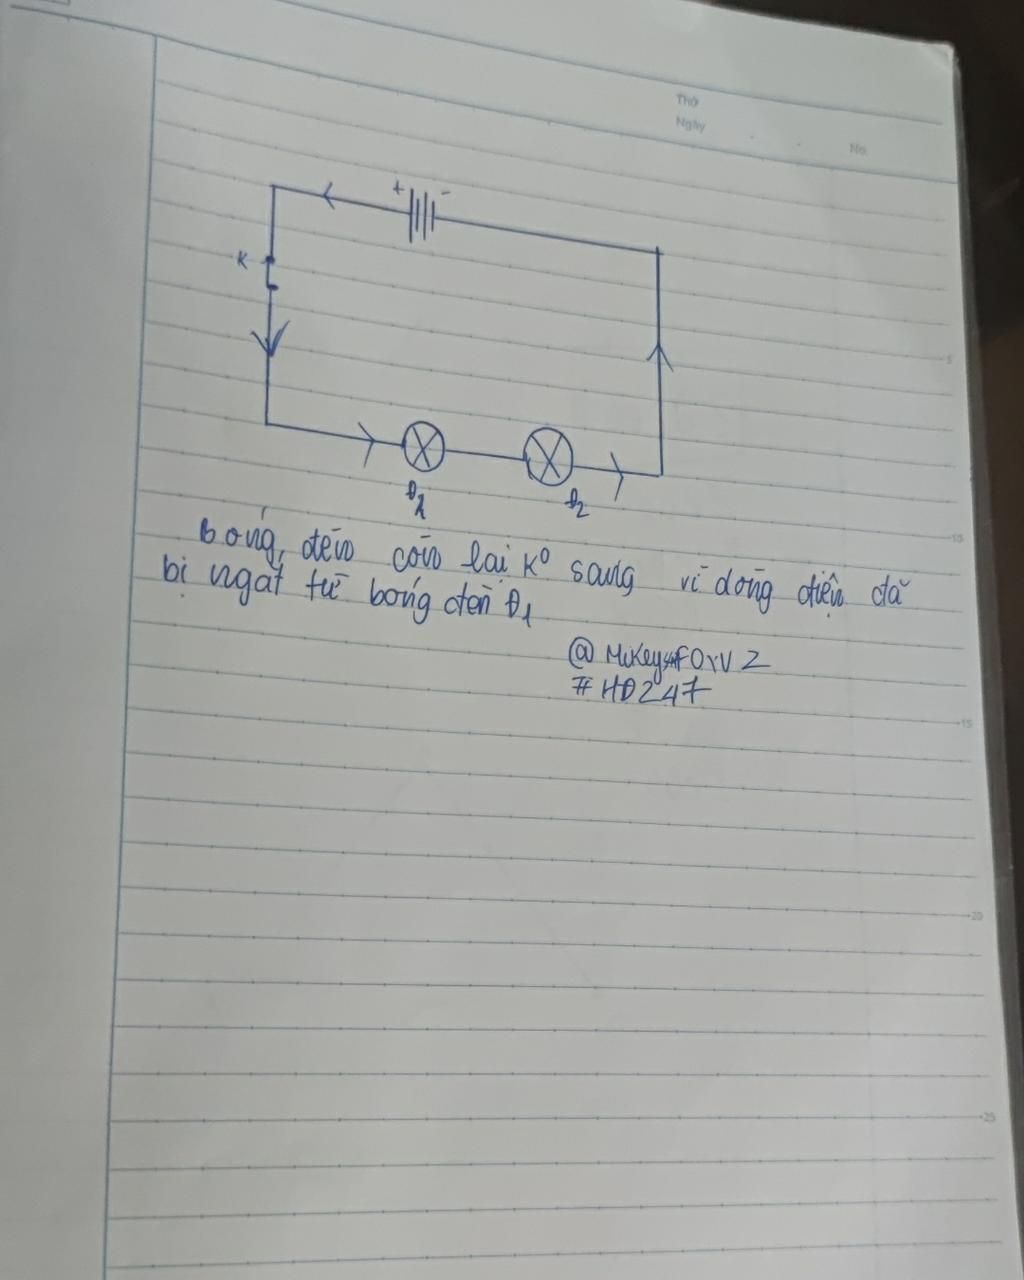 Thứ
Ngày
No.
+ -
K
5
Đ1 Đ2
10
Bóng đèn còn lại k° sáng vì dòng điện đã
bị ngắt từ bóng đèn Đ1
#HĐ247
15
20
25